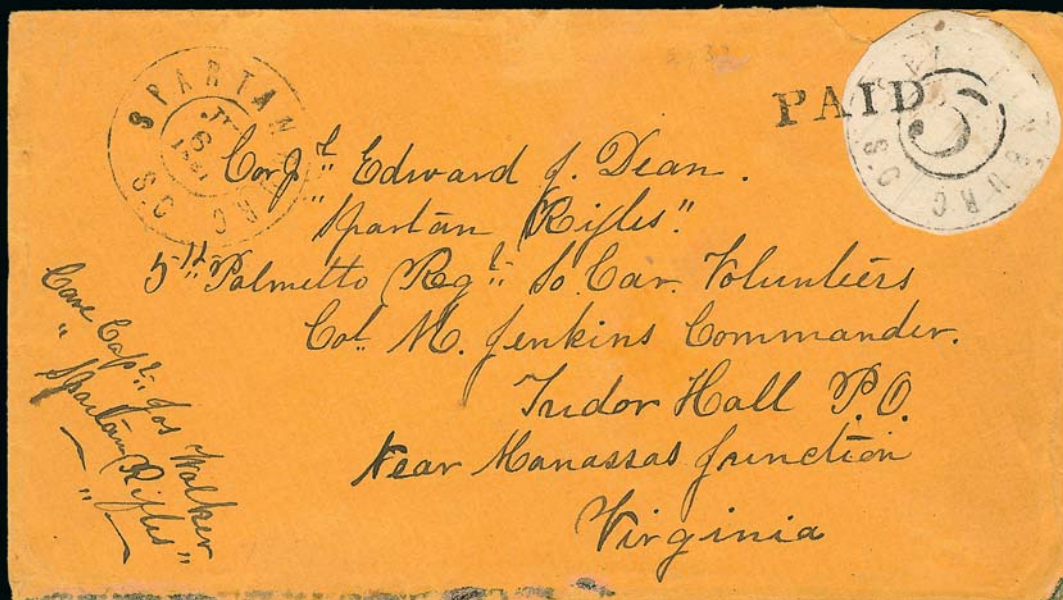 SPARTANBURG
S.C
6
1861
PAID
5
S.C.
Corp.l Edward J. Dean.
"Spartan Rifles"
5th Palmetto Reg.t So. Car. Volunteers
Col. M. Jenkins Commander.
Tudor Hall P.O.
Near Manassas Junction
Virginia
Care Capt. Jos Walker
"Spartan Rifles"